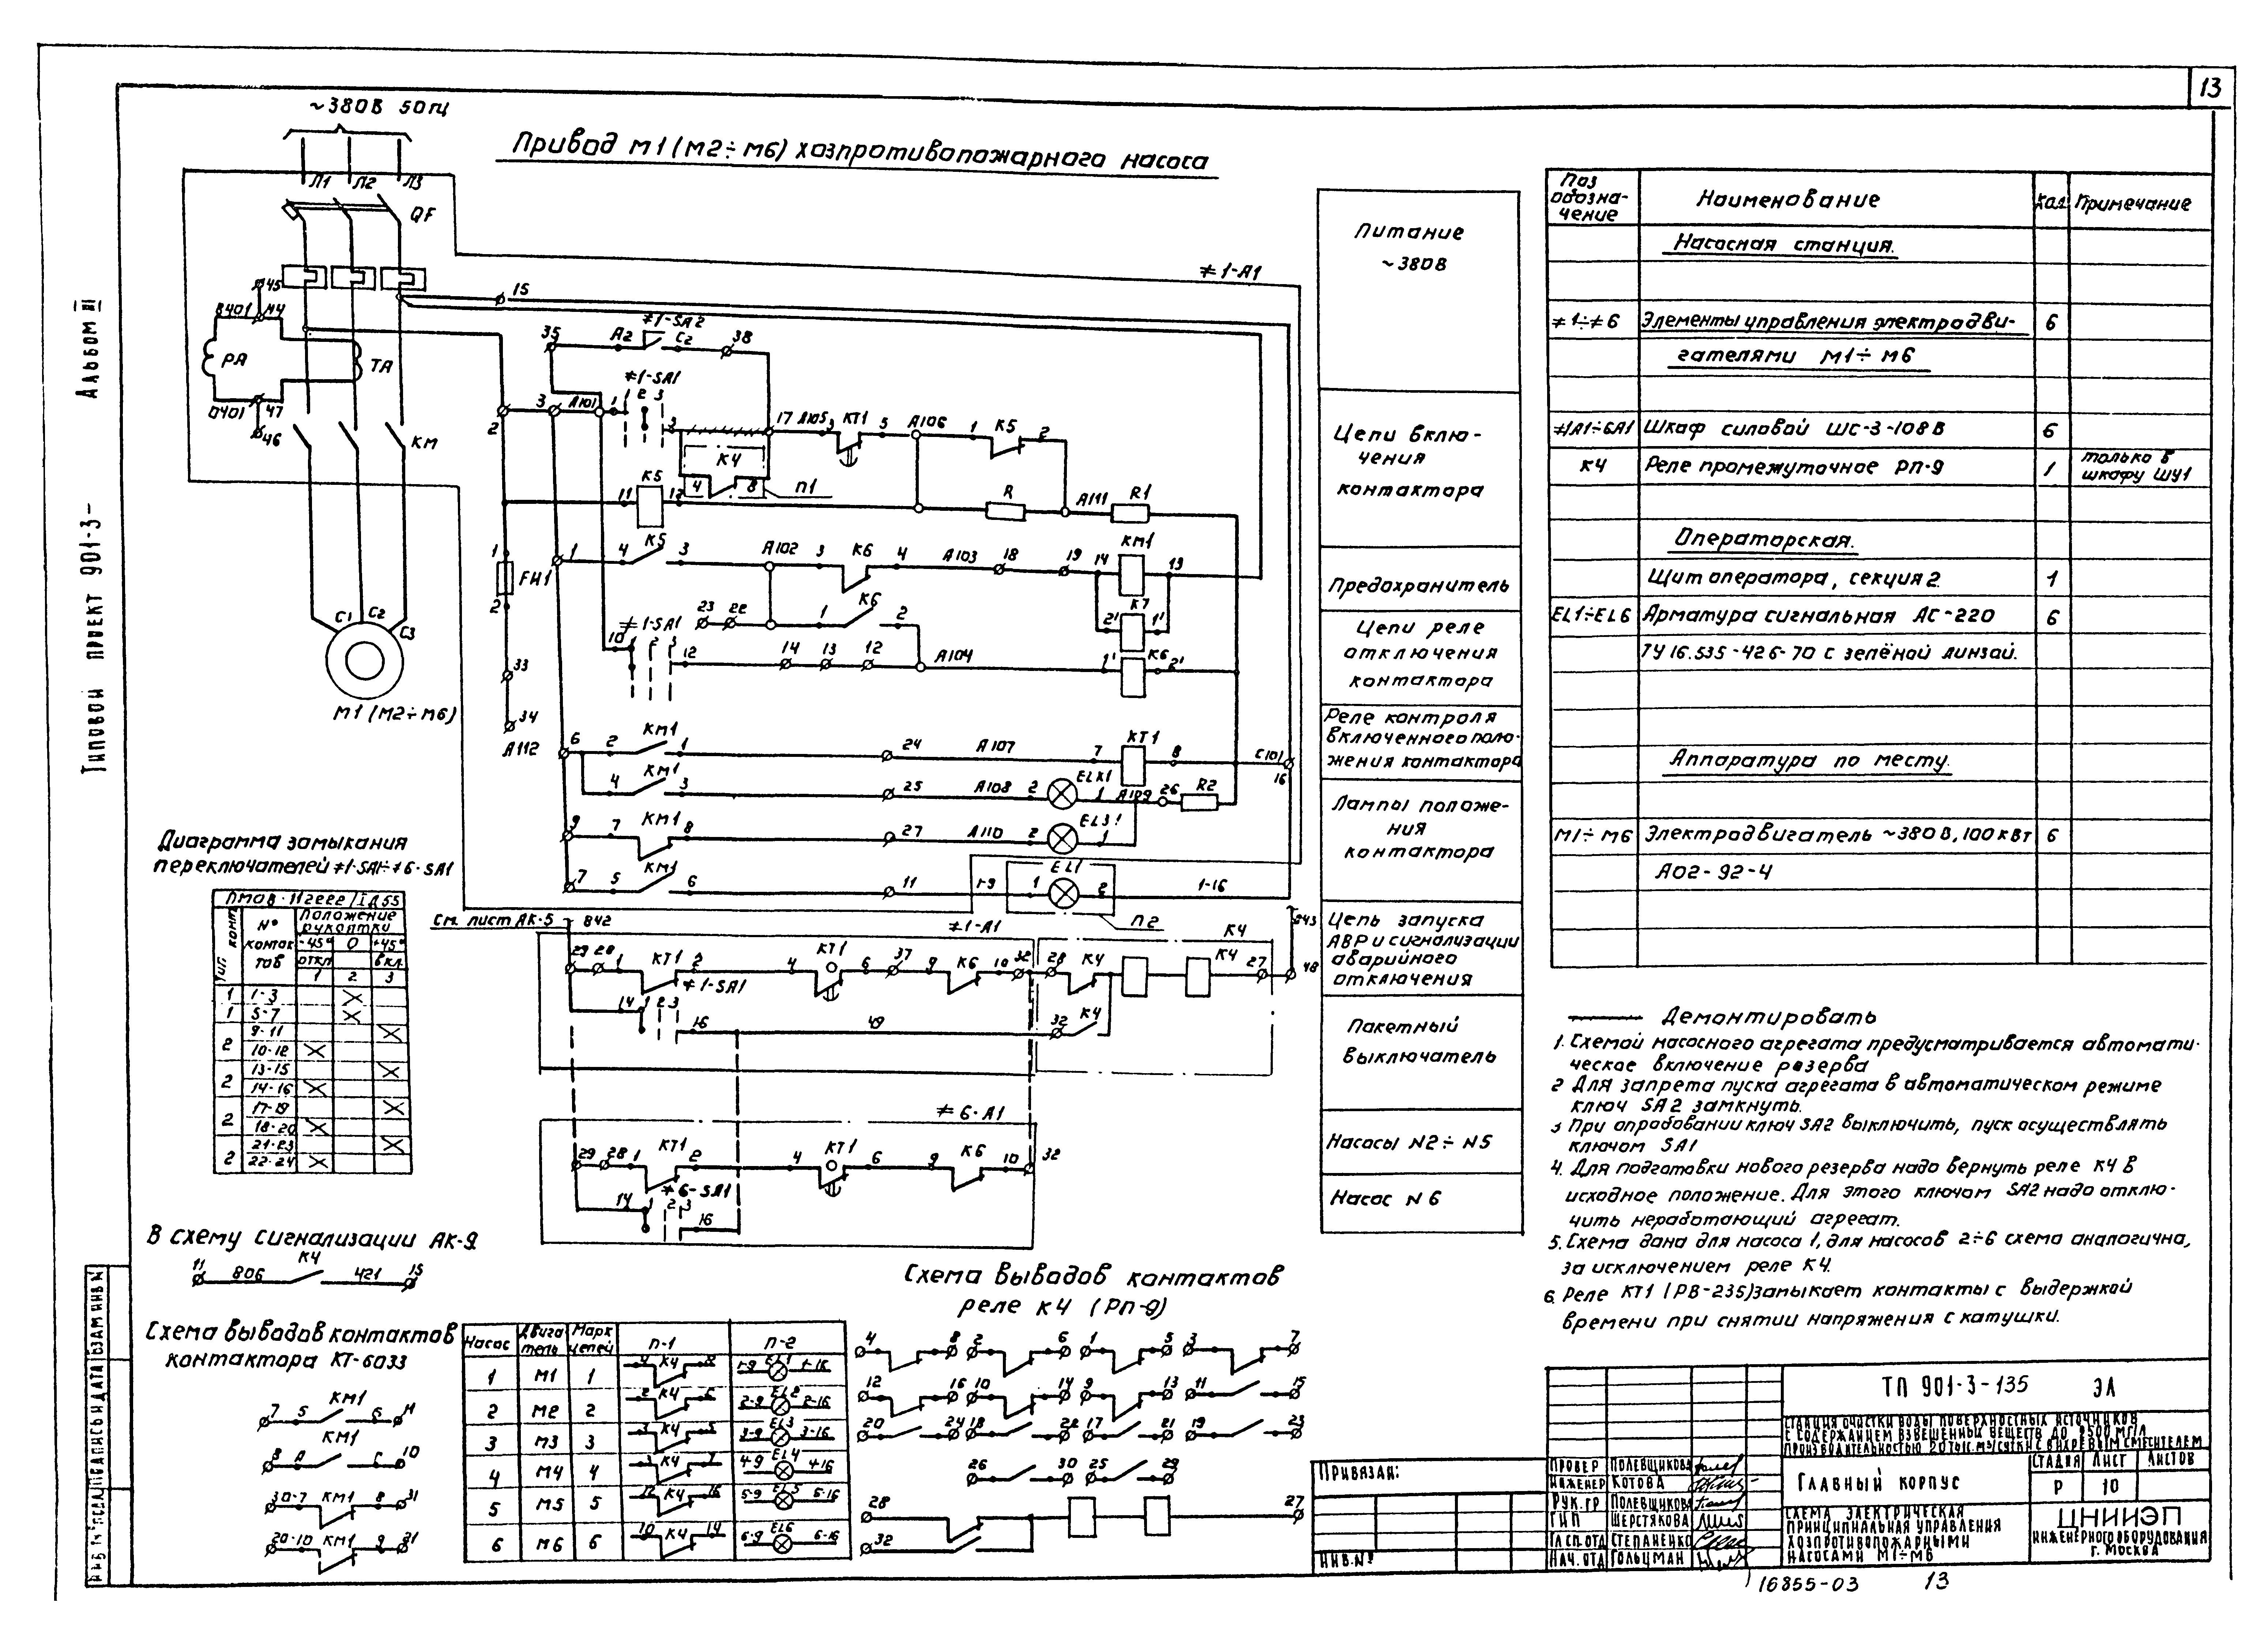 13
Альбом III
Типовой проект 901-3-
~380В 50гц
Привод М1 (М2÷М6) хозпротивопожарного насоса
Л1 Л2 Л3
QF
≠1-А1
45
В401 44
РА
ТА
0401 47
46
КМ
С1 С2 С3
М1 (М2÷М6)
15
35 А2 ≠1-SA2 С2 38
≠1-SA1
1 2 3
2 3 А101 1
3 17 А105 3 КТ1 5 А106 1 К5 2
К4
4 8 П1
К5
11 12 R А111 R1
1 FU1 2
1 4 К5 3 А102 3 К6 4 А103 18 19 14 КМ1 13
К7
2' 1'
23 22 1 К6 2
≠1-SA1
10 1 2 3 12 14 13 12 А104 1' К6 2'
33
34
А112
6 2 КМ1 1 24 А107 7 КТ1 8 С101 16
4 КМ1 3 25 А108 2 ELK1 1 А109 26 R2
9 7 КМ1 8 27 А110 2 EL31 1
7 5 КМ1 6 11 1-9 1 EL1 2 1-16
П2
См. лист АК-5 842
≠1-А1
К4
843
29 28 1 КТ1 2 4 КТ1 6 37 9 К6 10 32 28 К4 К4 27 48
≠1-SA1
14 1 2 3 16 49 32 К4
≠6-А1
29 28 1 КТ1 2 4 КТ1 6 9 К6 10 32
≠6-SA1
14 1 2 3 16
Питание
~380В
Цепи вклю-
чения
контактора
Предохранитель
Цепи реле
отключения
контактора
Реле контроля
включенного поло-
жения контактора
Лампы положе-
ния
контактора
Цепь запуска
АВР и сигнализации
аварийного
отключения
Пакетный
выключатель
Насосы N2÷N5
Насос N6
Поз обозна-чение Наименование Кол Примечание
Насосная станция.
≠1÷≠6 Элементы управления электродви- 6
гателями М1÷М6
≠1А1÷6А1 Шкаф силовой ШС-3-108В 6
К4 Реле промежуточное РП-9 1 только в шкафу ШУ1
Операторская.
Щит оператора, секция 2. 1
EL1÷EL6 Арматура сигнальная АС-220 6
ТУ16.535-426-70 с зелёной линзой.
Аппаратура по месту.
М1÷М6 Электродвигатель ~380В, 100кВт 6
АО2-92-4
Демонтировать
1. Схемой насосного агрегата предусматривается автомати-
ческое включение резерва
2 Для запрета пуска агрегата в автоматическом режиме
ключ SA2 замкнуть.
3 При опробовании ключ SA2 выключить, пуск осуществлять
ключом SA1
4. Для подготовки нового резерва надо вернуть реле К4 в
исходное положение. Для этого ключом SA2 надо отклю-
чить неработающий агрегат.
5. Схема дана для насоса 1, для насосов 2÷6 схема аналогична,
за исключением реле К4.
6. Реле КТ1 (РВ-235) замыкает контакты с выдержкой
времени при снятии напряжения с катушки.
Диаграмма замыкания
переключателей ≠1-SA1÷≠6-SA1
ПМОВ-112222/IД55
Тип конт. N° контактов Положение рукоятки
-45° 0 +45°
откл вкл.
1 2 3
1 1-3 X
1 5-7 X
2 9-11 X
10-12 X
2 13-15 X
14-16 X
2 17-19 X
18-20 X
2 21-23 X
22-24 X
В схему сигнализации АК-9
11 806 К4 421 15
Схема выводов контактов
контактора КТ-6033
7 5 КМ1 6 11
8 А КМ1 С 10
30-7 КМ1 8 31
20-10 КМ1 9 21
Насос Двигатель Марк цепей П-1 П-2
1 М1 1 4 К4 8 1-9 EL1 1-16
2 М2 2 2 К4 6 2-9 EL2 2-16
3 М3 3 1 К4 5 3-9 EL3 3-16
4 М4 4 3 К4 7 4-9 EL4 4-16
5 М5 5 12 К4 16 5-9 EL5 5-16
6 М6 6 10 К4 14 6-9 EL6 6-16
Схема выводов контактов
реле К4 (РП-9)
4 8 2 6 1 5 3 7
12 16 10 14 9 13 11 15
20 24 18 22 17 21 19 23
26 30 25 29
28 27
32
Привязан:
ИНВ.N°
ТП 901-3-135 ЭЛ
Станция очистки воды поверхностных источников
с содержанием взвешенных веществ до 2500 мг/л
производительностью 20 тыс. м3/сутки с вихревым смесителем
Провер Полевщикова
Инженер Котова
Рук.гр Полевщикова
ГИП Шерстякова
Гл.сп.отд Степаненко
Нач.отд Гольцман
Главный корпус
Стадия Лист Листов
Р 10
Схема электрическая
принципиальная управления
хозпротивопожарными
насосами М1÷М6
ЦНИИЭП
инженерного оборудования
г. Москва
16855-03 13